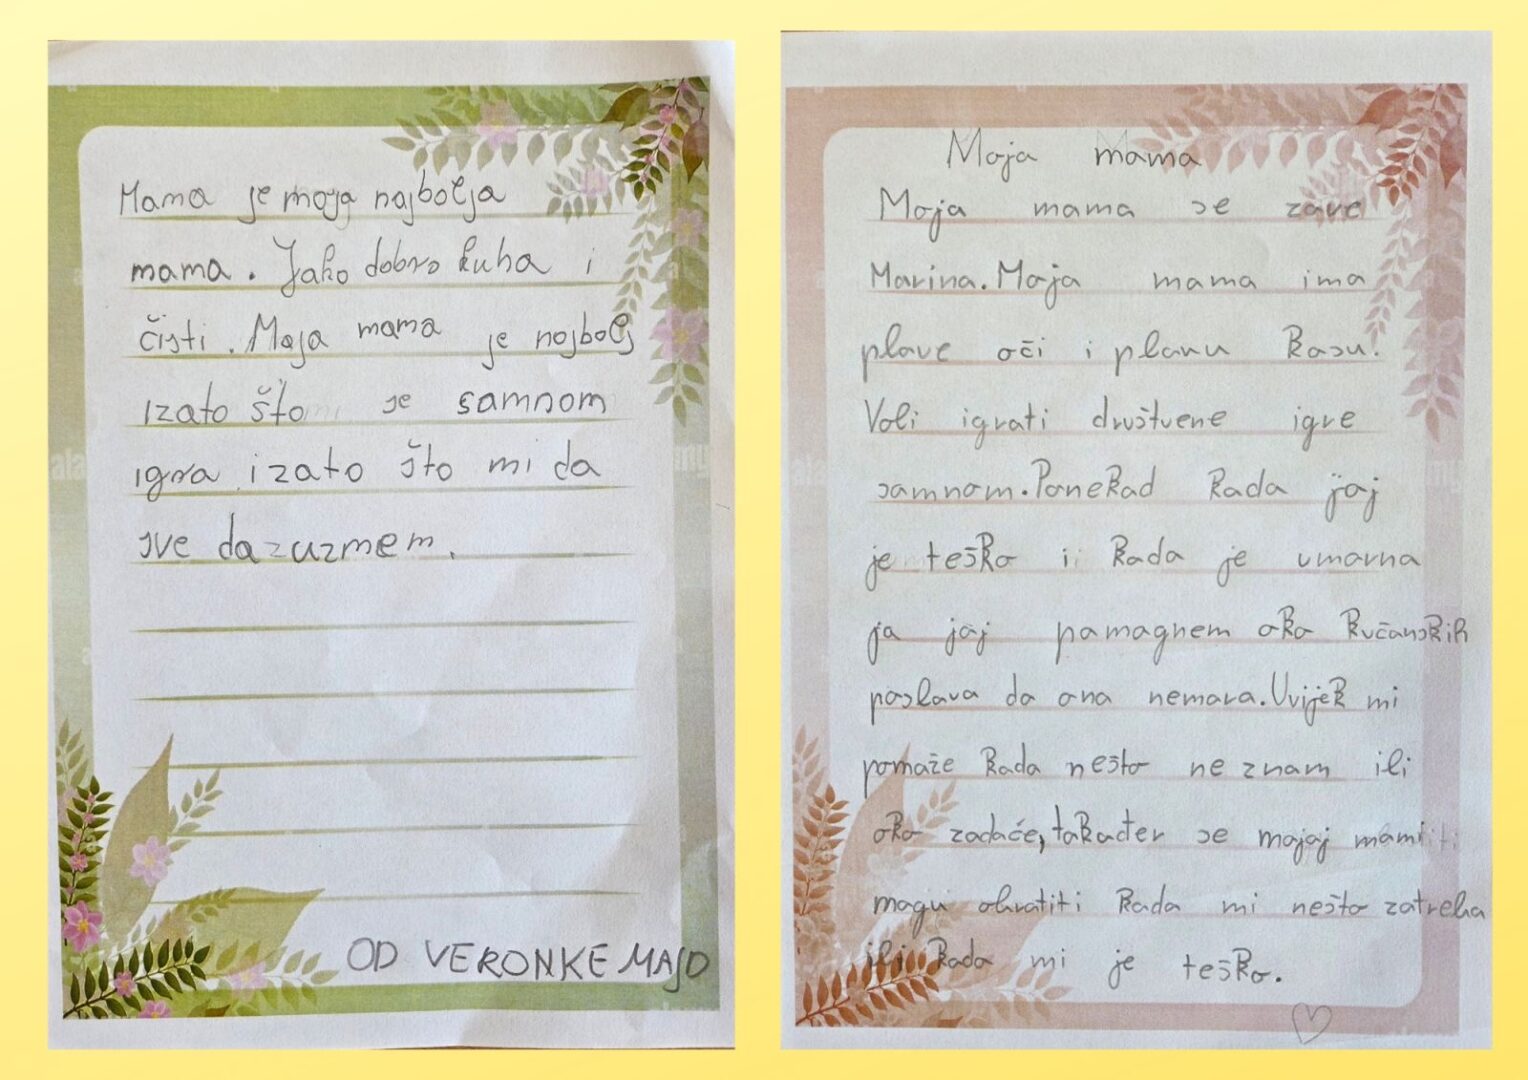 Mama je moja najbolja
mama. Jako dobro kuha i
čisti. Moja mama je najbolj
izato što se samnom
igra izato što mi da
sve da zuzmem.
OD VERONKE MAJO
Moja mama
Moja mama se zove
Marina. Moja mama ima
plave oči i plavu kosu!
Voli igrati društvene igre
samnom. Ponekad kada joj
je teško i kada je umorna
ja joj pomognem oko kučanskih
poslova da ona nemora. Uvijek mi
pomaže kada nešto ne znam ili
oko zadaće, također se mojoj mami
mogu obratiti kada mi nešto zatreba
ili kada mi je teško.